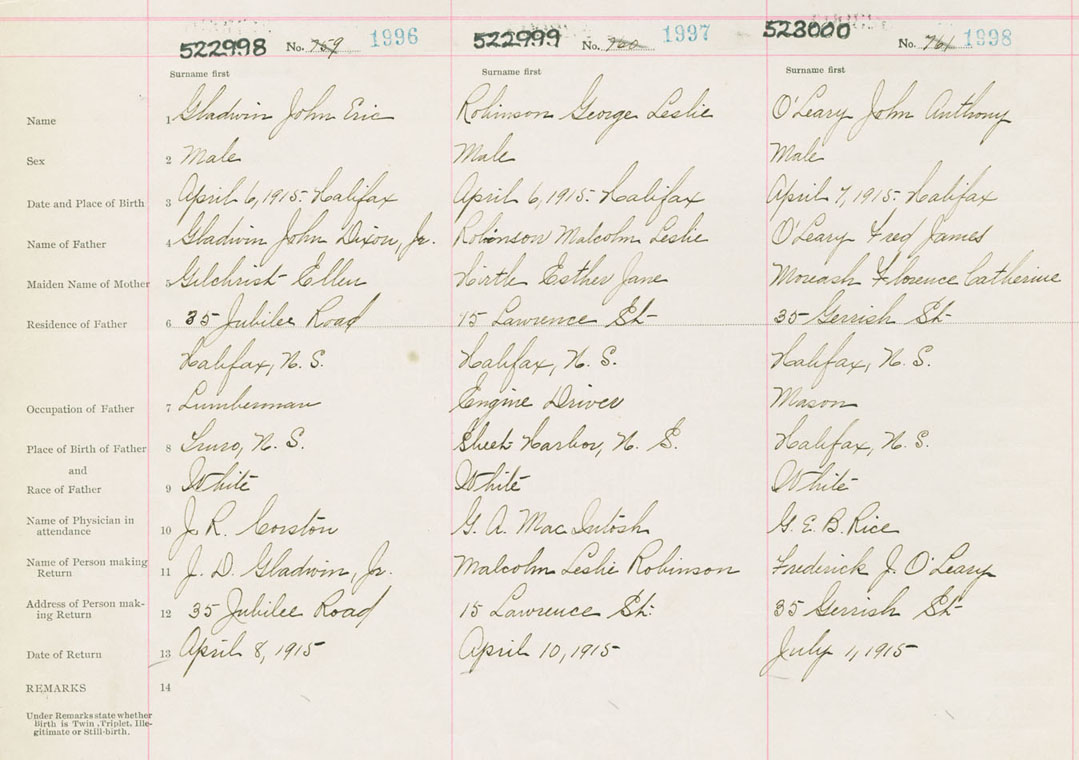 522998 No. 759 1996 522999 No. 760 1997 523000 No. 761 1998
Surname first Surname first Surname first
Name 1 Gladwin John Eric Robinson George Leslie O'Leary John Anthony
Sex 2 Male Male Male
Date and Place of Birth 3 April 6, 1915 - Halifax April 6, 1915 - Halifax April 7, 1915 - Halifax
Name of Father 4 Gladwin John Dixon, Jr. Robinson Malcolm Leslie O'Leary Fred James
Maiden Name of Mother 5 Gilchrist Ellen Hirtle Esther Jane Moneash Florence Catherine
Residence of Father 6 35 Jubilee Road 15 Lawrence St- 35 Gerrish St-
Halifax, N. S. Halifax, N. S. Halifax, N. S.
Occupation of Father 7 Lumberman Engine Driver Mason
Place of Birth of Father 8 Truro, N. S. Sheet Harbor, N. S. Halifax, N. S.
and
Race of Father 9 White White White
Name of Physician in
attendance 10 J. R. Corston G. A. MacIntosh G. E. B. Rice
Name of Person making
Return 11 J. D. Gladwin, Jr. Malcolm Leslie Robinson Frederick J. O'Leary
Address of Person mak-
ing Return 12 35 Jubilee Road 15 Lawrence St- 35 Gerrish St-
Date of Return 13 April 8, 1915 April 10, 1915 July 1, 1915
REMARKS 14
Under Remarks state whether
Birth is Twin, Triplet, Ille-
gitimate or Still-birth.